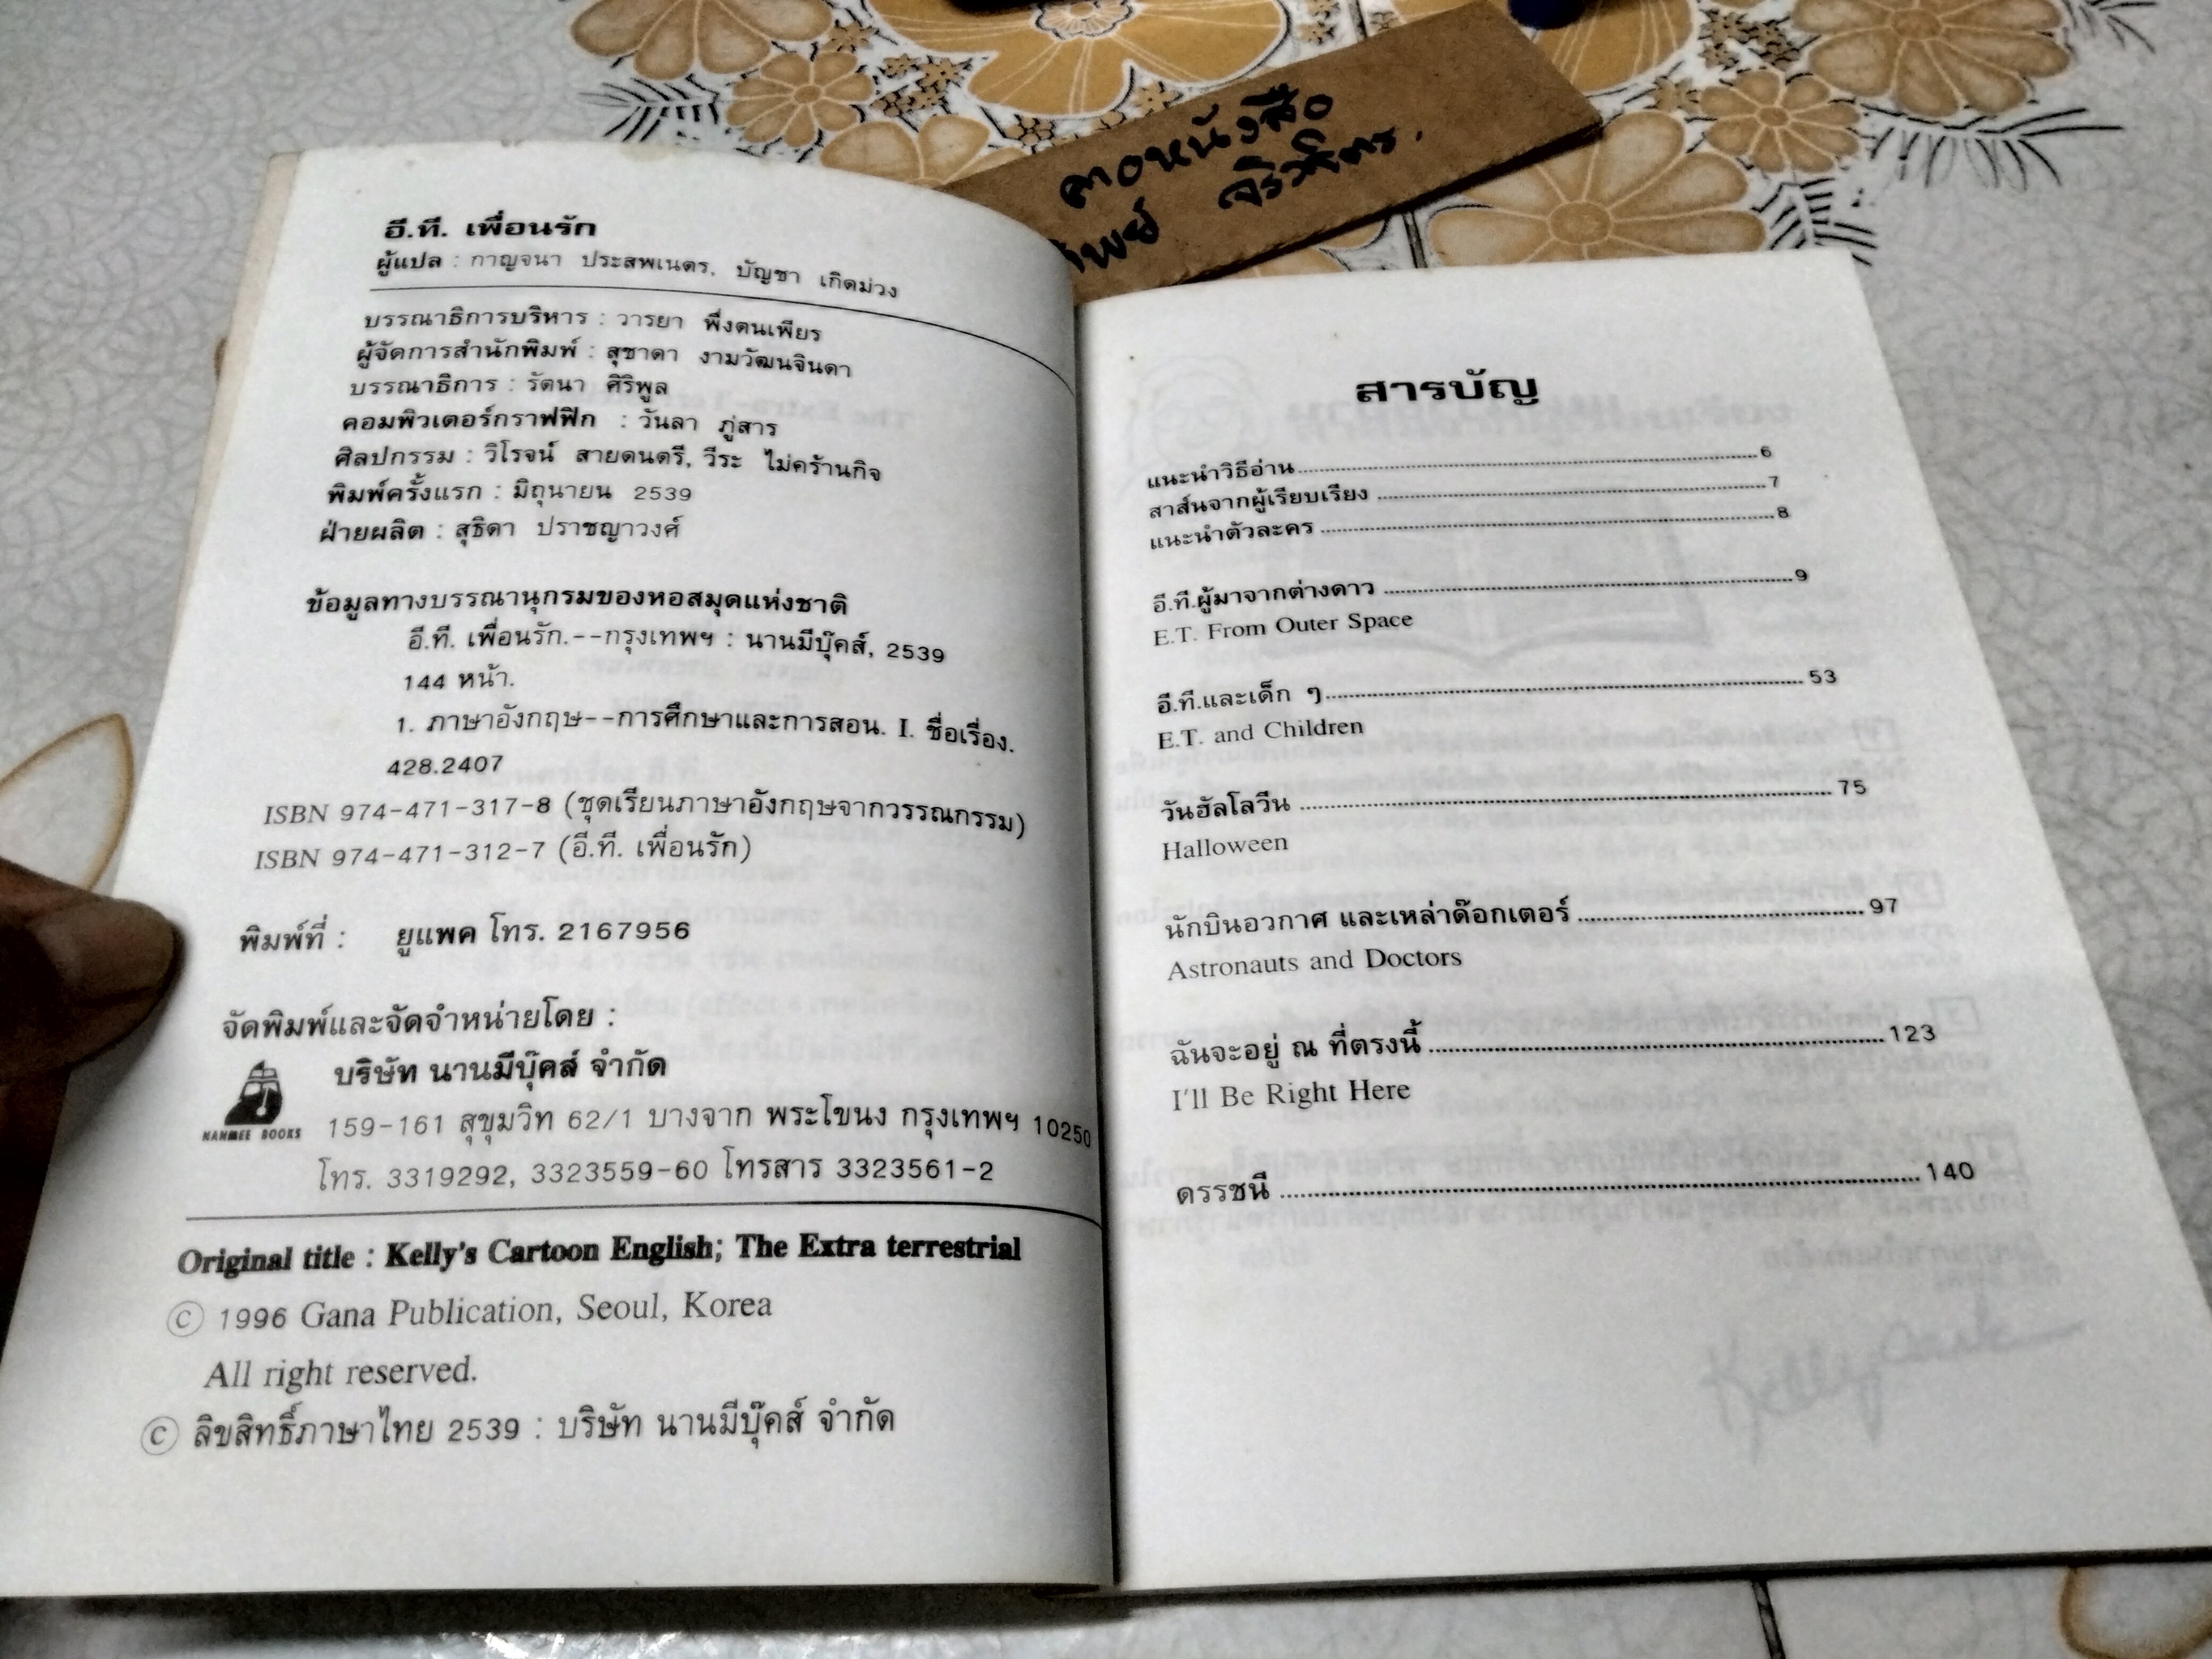 ลาดหนังสือ
ทิพย์ จิรวัสตร.
อี.ที. เพื่อนรัก
ผู้แปล : กาญจนา ประสพเนตร, บัญชา เกิดม่วง
บรรณาธิการบริหาร : วารยา พึ่งตนเพียร
ผู้จัดการสำนักพิมพ์ : สุชาดา งามวัฒนจินดา
บรรณาธิการ : รัตนา ศิริพูล
คอมพิวเตอร์กราฟฟิก : วันลา ภู่สาร
ศิลปกรรม : วิโรจน์ สายดนตรี, วีระ ไม่คร้านกิจ
พิมพ์ครั้งแรก : มิถุนายน 2539
ฝ่ายผลิต : สุธิดา ปราชญาวงศ์
ข้อมูลทางบรรณานุกรมของหอสมุดแห่งชาติ
อี.ที. เพื่อนรัก.--กรุงเทพฯ : นานมีบุ๊คส์, 2539
144 หน้า.
1. ภาษาอังกฤษ--การศึกษาและการสอน. I. ชื่อเรื่อง.
428.2407
ISBN 974-471-317-8 (ชุดเรียนภาษาอังกฤษจากวรรณกรรม)
ISBN 974-471-312-7 (อี.ที. เพื่อนรัก)
พิมพ์ที่ : ยูแพค โทร. 2167956
จัดพิมพ์และจัดจำหน่ายโดย :
บริษัท นานมีบุ๊คส์ จำกัด
NANMEE BOOKS
159-161 สุขุมวิท 62/1 บางจาก พระโขนง กรุงเทพฯ 10250
โทร. 3319292, 3323559-60 โทรสาร 3323561-2
Original title : Kelly's Cartoon English; The Extra terrestrial
© 1996 Gana Publication, Seoul, Korea
All right reserved.
© ลิขสิทธิ์ภาษาไทย 2539 : บริษัท นานมีบุ๊คส์ จำกัด
สารบัญ
แนะนำวิธีอ่าน ........ 6
สาส์นจากผู้เรียบเรียง ........ 7
แนะนำตัวละคร ........ 8
อี.ที.ผู้มาจากต่างดาว ........ 9
E.T. From Outer Space
อี.ที.และเด็ก ๆ ........ 53
E.T. and Children
วันฮัลโลวีน ........ 75
Halloween
นักบินอวกาศ และเหล่าด๊อกเตอร์ ........ 97
Astronauts and Doctors
ฉันจะอยู่ ณ ที่ตรงนี้ ........ 123
I'll Be Right Here
ดรรชนี ........ 140